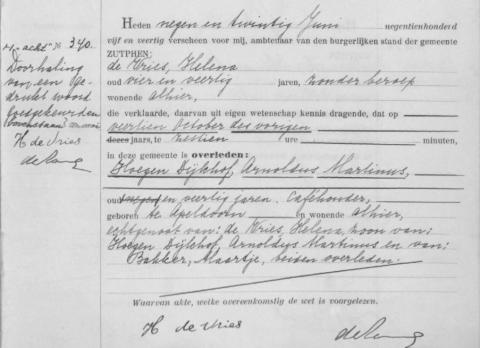 Heden negen en twintig Juni negentienhonderd
vijf en veertig verscheen voor mij, ambtenaar van den burgerlijken stand der gemeente
ZUTPHEN:
de Vries, Helena
oud vier en veertig jaren, zonder beroep
wonende alhier,
die verklaarde, daarvan uit eigen wetenschap kennis dragende, dat op
veertien October des vorigen
dezes jaars, te zestien ure minuten,
in deze gemeente is overleden:
Hoegen Dijkhof, Arnoldus Martinus,
oud negen en veertig jaren. Caféhouder,
geboren te Apeldoorn en wonende alhier,
echtgenoot van: de Vries, Helena, zoon van:
Hoegen Dijkhof, Arnoldus Martinus en van:
Bakker, Maartje, beiden overleden.
Waarvan akte, welke overeenkomstig de wet is voorgelezen.
H de Vries
akte No 340.
Doorhaling
van een ge-
drukt woord
goedgekeurd en
H de Vries